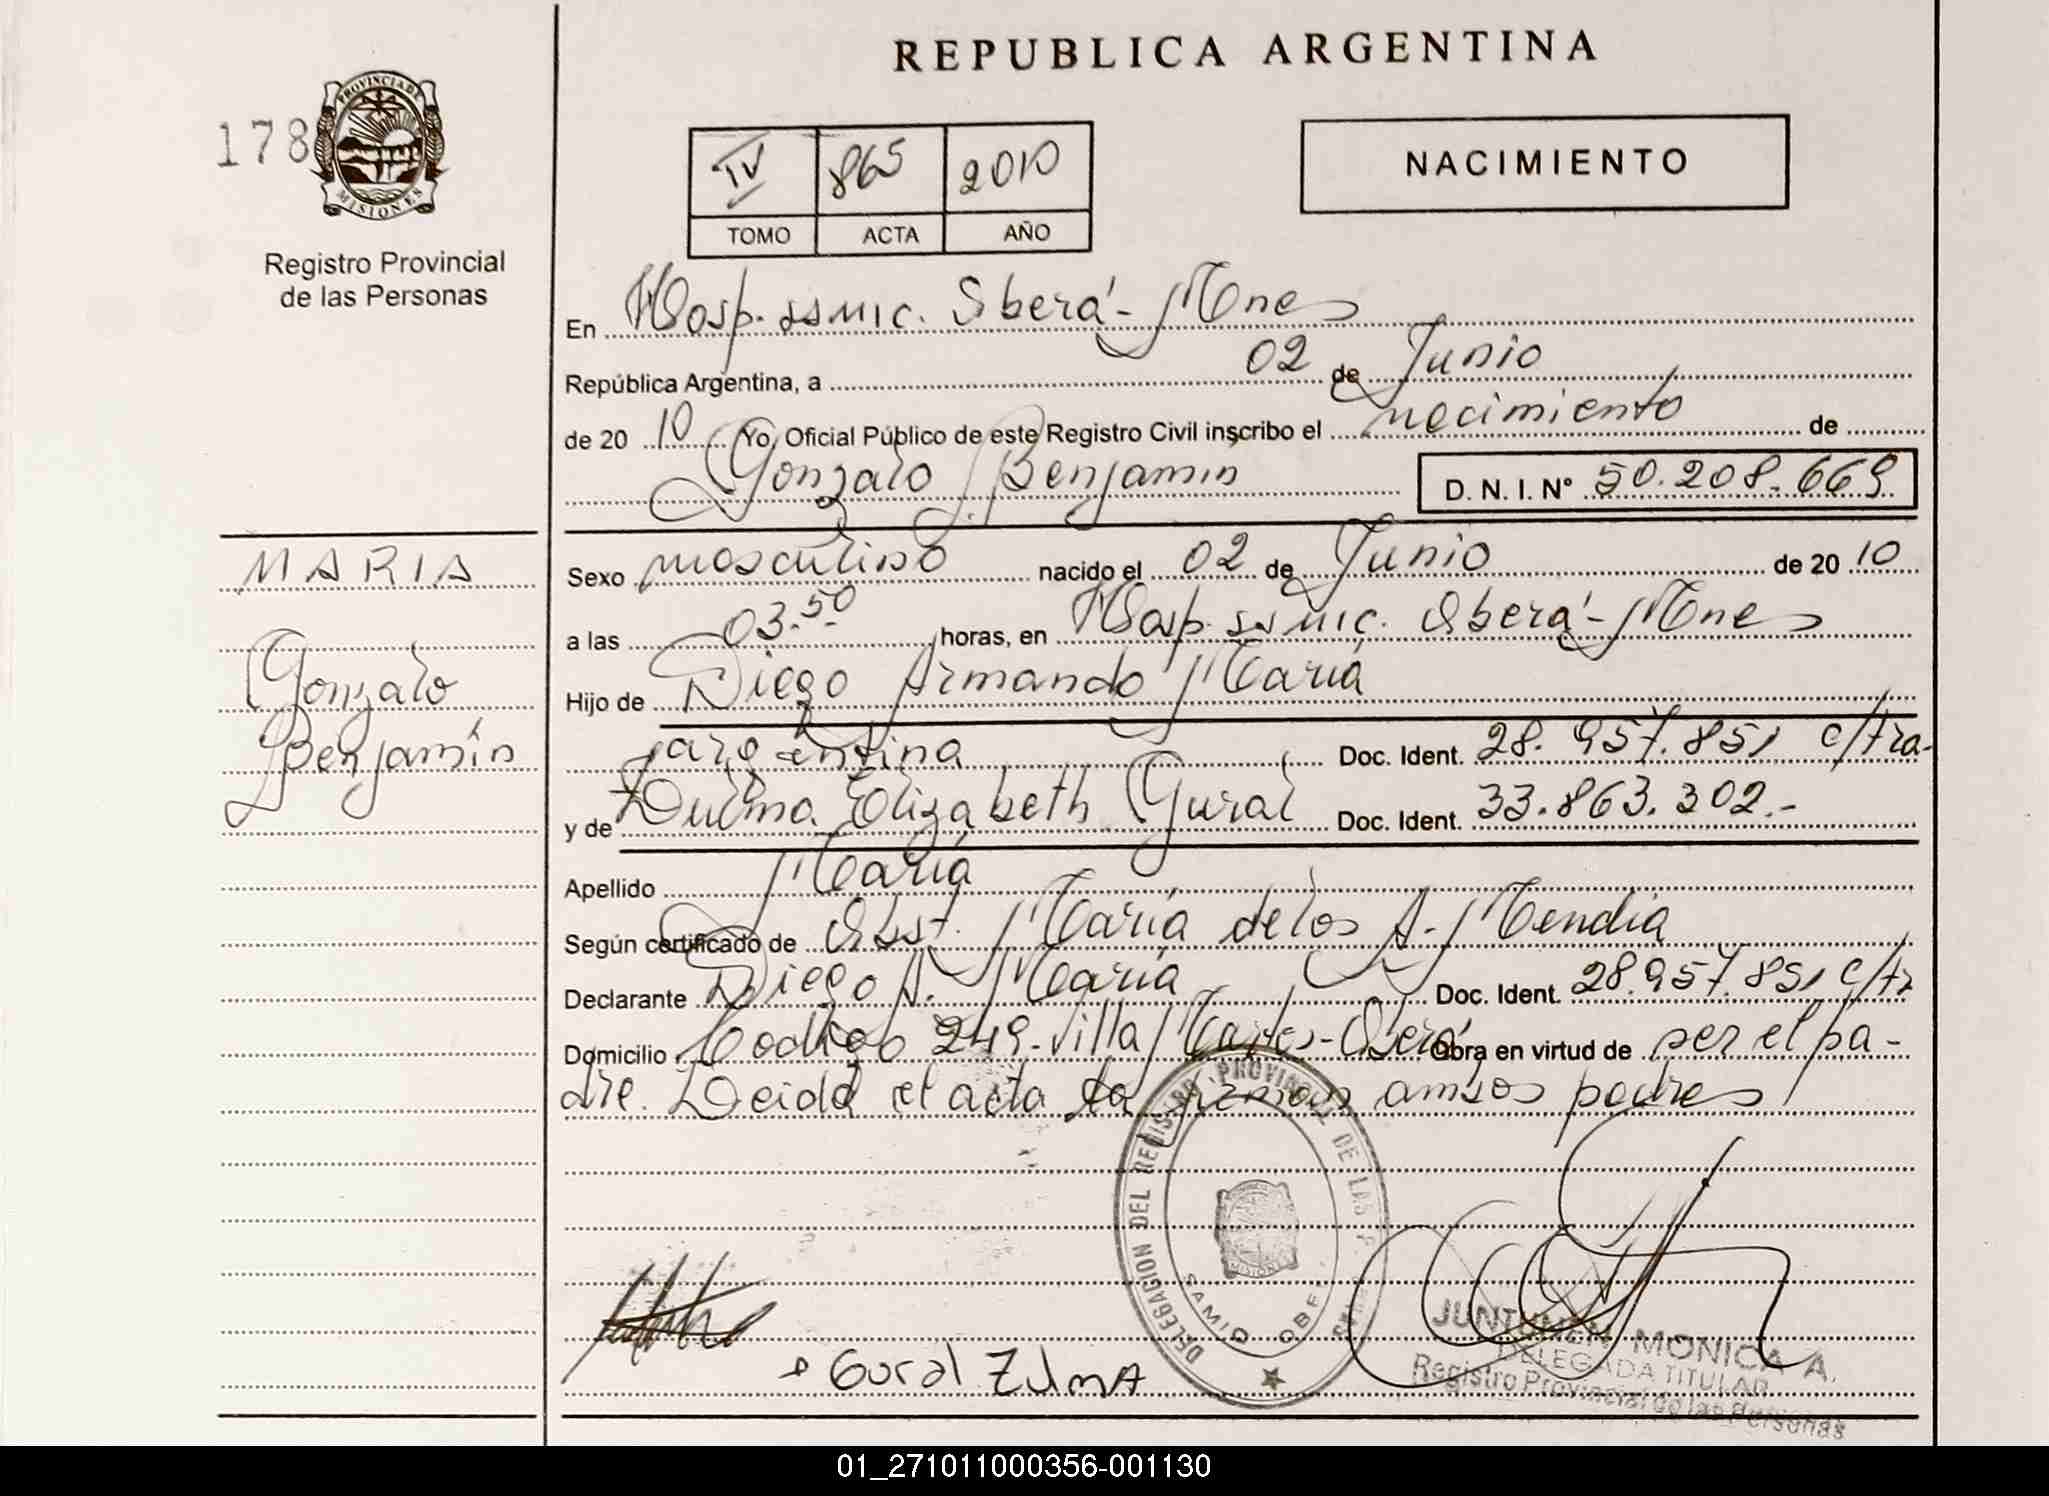 REPUBLICA ARGENTINA
178
PROVINCIA DE
MISIONES
Registro Provincial
de las Personas
IV 865 2010
TOMO ACTA AÑO
NACIMIENTO
En Hosp. ssmic. Oberá - Mnes
República Argentina, a 02 de Junio
de 20 10 Yo, Oficial Público de este Registro Civil inscribo el nacimiento de
Gonzalo Benjamín D. N. I. N° 50.208.669
MARIA
Gonzalo
Benjamín
Sexo masculino nacido el 02 de Junio de 20 10
a las 03.50 horas, en Hosp. ssmic. Oberá - Mnes
Hijo de Diego Armando María
argentina Doc. Ident. 28.957.851 c/tra-
y de Zulma Elizabeth Gural Doc. Ident. 33.863.302.-
Apellido María
Según certificado de Obst. María de los A. Mendia
Declarante Diego A. María Doc. Ident. 28.957.851 c/tr
Domicilio 249 - Villa - Oberá Obra en virtud de ser el pa-
dre. Leída el acta la firman ambos padres
DELEGACION DEL REGISTRO PROVINCIAL DE LAS P
SAMIC OBE
MISIONES
Gural ZulmA
JUNTUNEN MONICA A.
DELEGADA TITULAR
Registro Provincial de las Personas
01_271011000356-001130